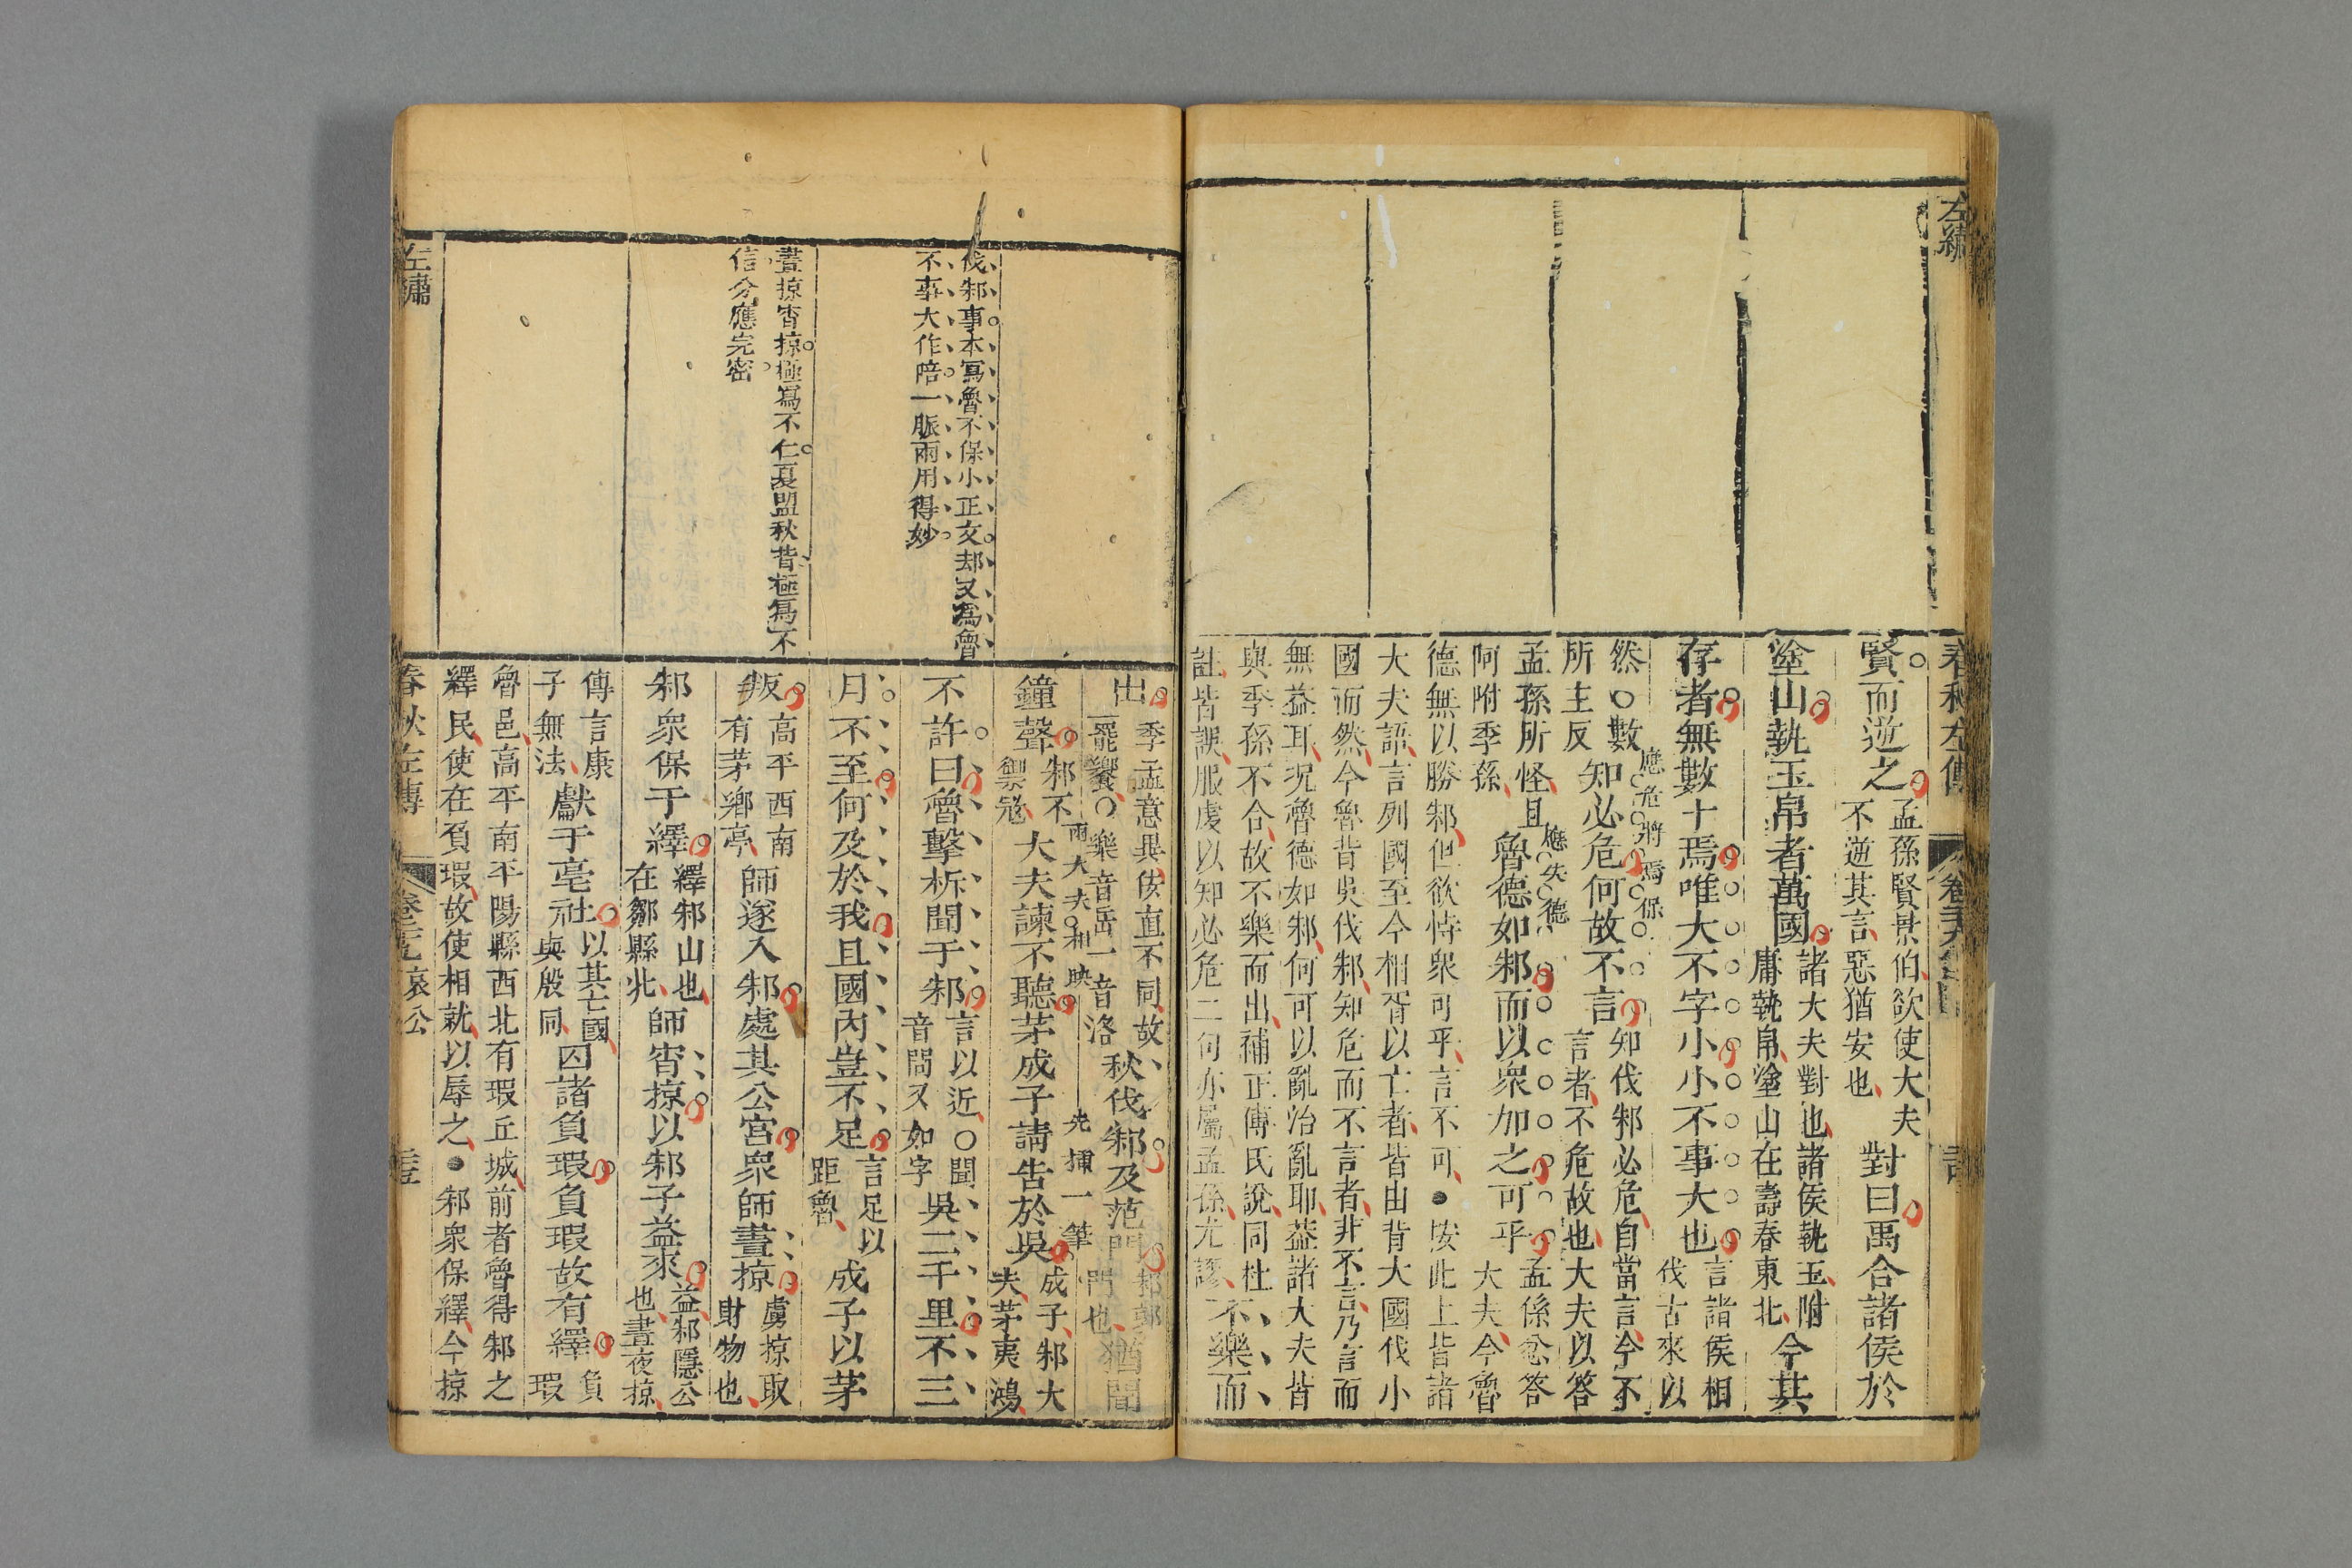 左繡
春秋左傳
賢而逆之孟孫賢景伯欲使大夫不逆其言惡猶安也對曰禹合諸侯於
塗山執玉帛者萬國諸大夫對也諸侯執玉附庸執帛塗山在壽春東北今其
存者無數十焉唯大不字小小不事大也言諸侯相伐古來以
然○數所主反知必危何故不言知伐邾必危自當言今不言者不危故也大夫以答
應危將焉保
孟孫所怪且阿附季孫魯德如邾而以衆加之可乎孟孫忿答大夫今魯
應失德
德無以勝邾但欲恃衆可乎言不可●按此上皆諸
大夫語言列國至今相胥以亡者皆由背大國伐小
國而然今魯背吳伐邾知危而不言者非不言乃言而
無益耳况魯德如邾何可以亂治亂耶葢諸大夫皆
與季孫不合故不樂而出補正傅氏說同杜
註皆誤服虔以知必危二句亦屬孟孫尤謬不樂而
伐邾事本寫魯不保小正文却又爲魯
不事大作陪一脈兩用得妙
晝掠宵掠極爲不仁夏盟秋背極爲不
信分應完密
出季孟意異佞直不同故罷饗○樂音岳一音洛秋伐邾及范門邾郭門也猶聞
兩大夫相映
先插一筆
鐘聲邾不禦冦大夫諫不聽茅成子請告於吳成子邾大夫茅夷鴻
不許曰魯擊柝聞于邾言以近○聞音問又如字吳二千里不三
月不至何及於我且國內豈不足言足以距魯成子以茅
叛高平西南有茅鄉亭師遂入邾處其公宮衆師晝掠虜掠取財物也
邾衆保于繹繹邾山也在鄒縣北師宵掠以邾子益來益邾隱公也晝夜掠
傳言康子無法獻于亳社以其亡國與殷同囚諸負瑕負瑕故有繹負瑕
魯邑高平南平陽縣西北有瑕丘城前者魯得邾之
繹民使在負瑕故使相就以辱之●邾衆保繹今掠
左繡
春秋左傳
哀公